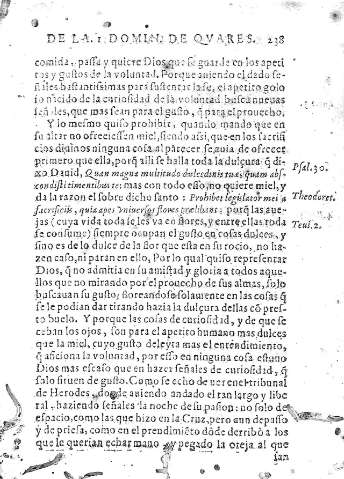 DE LA. 1. DOMIN. DE QVARES. 238
comida, passa y quiere Dios que se guarde en los apeti
tos y gustos de la voluntad. Porque auiendo el dado se-
ñales bastantissimas para sustentar la fe, el apetito golo
so nacido de la curiosidad de la voluntad busca nueuas
señales, que mas sean para el gusto, q̃ para el prouecho,
Y lo mesmo quiso prohibir, quando mando que en
su altar no ofreciessen miel, siendo assi, que en los sacrifi
cios diuinos ninguna cosa al parecer se auia de ofrecer
primero que ella, porq̃ alli se halla toda la dulçura, q̃ di
xo Dauid, Quan magna multitudo dulcedinis tuæ, quam abs-
condisti timentibus te: mas con todo esso, no quiere miel, y
da la razon el sobre dicho santo: Prohibet legislator mel a
sacrificijs, quia apes vniuersos flores prælibant: porq̃ las aue-
jas (cuya vida toda se les va en flores, y entre ellas toda
se consume) siempre ocupan el gusto en cosas dulces, y
sino es de lo dulce de la flor que esta en su rocio, no ha
zen caso, ni paran en ello, Por lo qual quiso representar
Dios, q̃ no admitia en su amistad y gloria a todos aque-
llos que no mirando por el prouecho de sus almas, solo
buscauan su gusto, floreandose solamente en las cosas q̃
se le podian dar tirando hazia la dulçura dellas cõ pres-
to buelo. Y porque las cosas de curiosidad, y de que se
ceban los ojos, son para el apetito humano mas dulces
que la miel, cuyo gusto deleyta mas el entendimiento,
q̃ aficiona la voluntad, por esso en ninguna cosa estuuo
Dios mas escaso que en hazer señales de curiosidad, q̃
solo siruen de gusto. Como se echo de ver en el tribunal
de Herodes, donde auiendo andado el tan largo y libe
ral, haziendo señales la noche de su passion: no solo de
espacio, como las que hizo en la Cruz, pero aun de passo
y de priesa, como en el prendimiẽto dõde derribò a los
que le querian echar mano, y pegado la oreja al que
san
Psal. 30.
Theodoret.
Teul. 2.